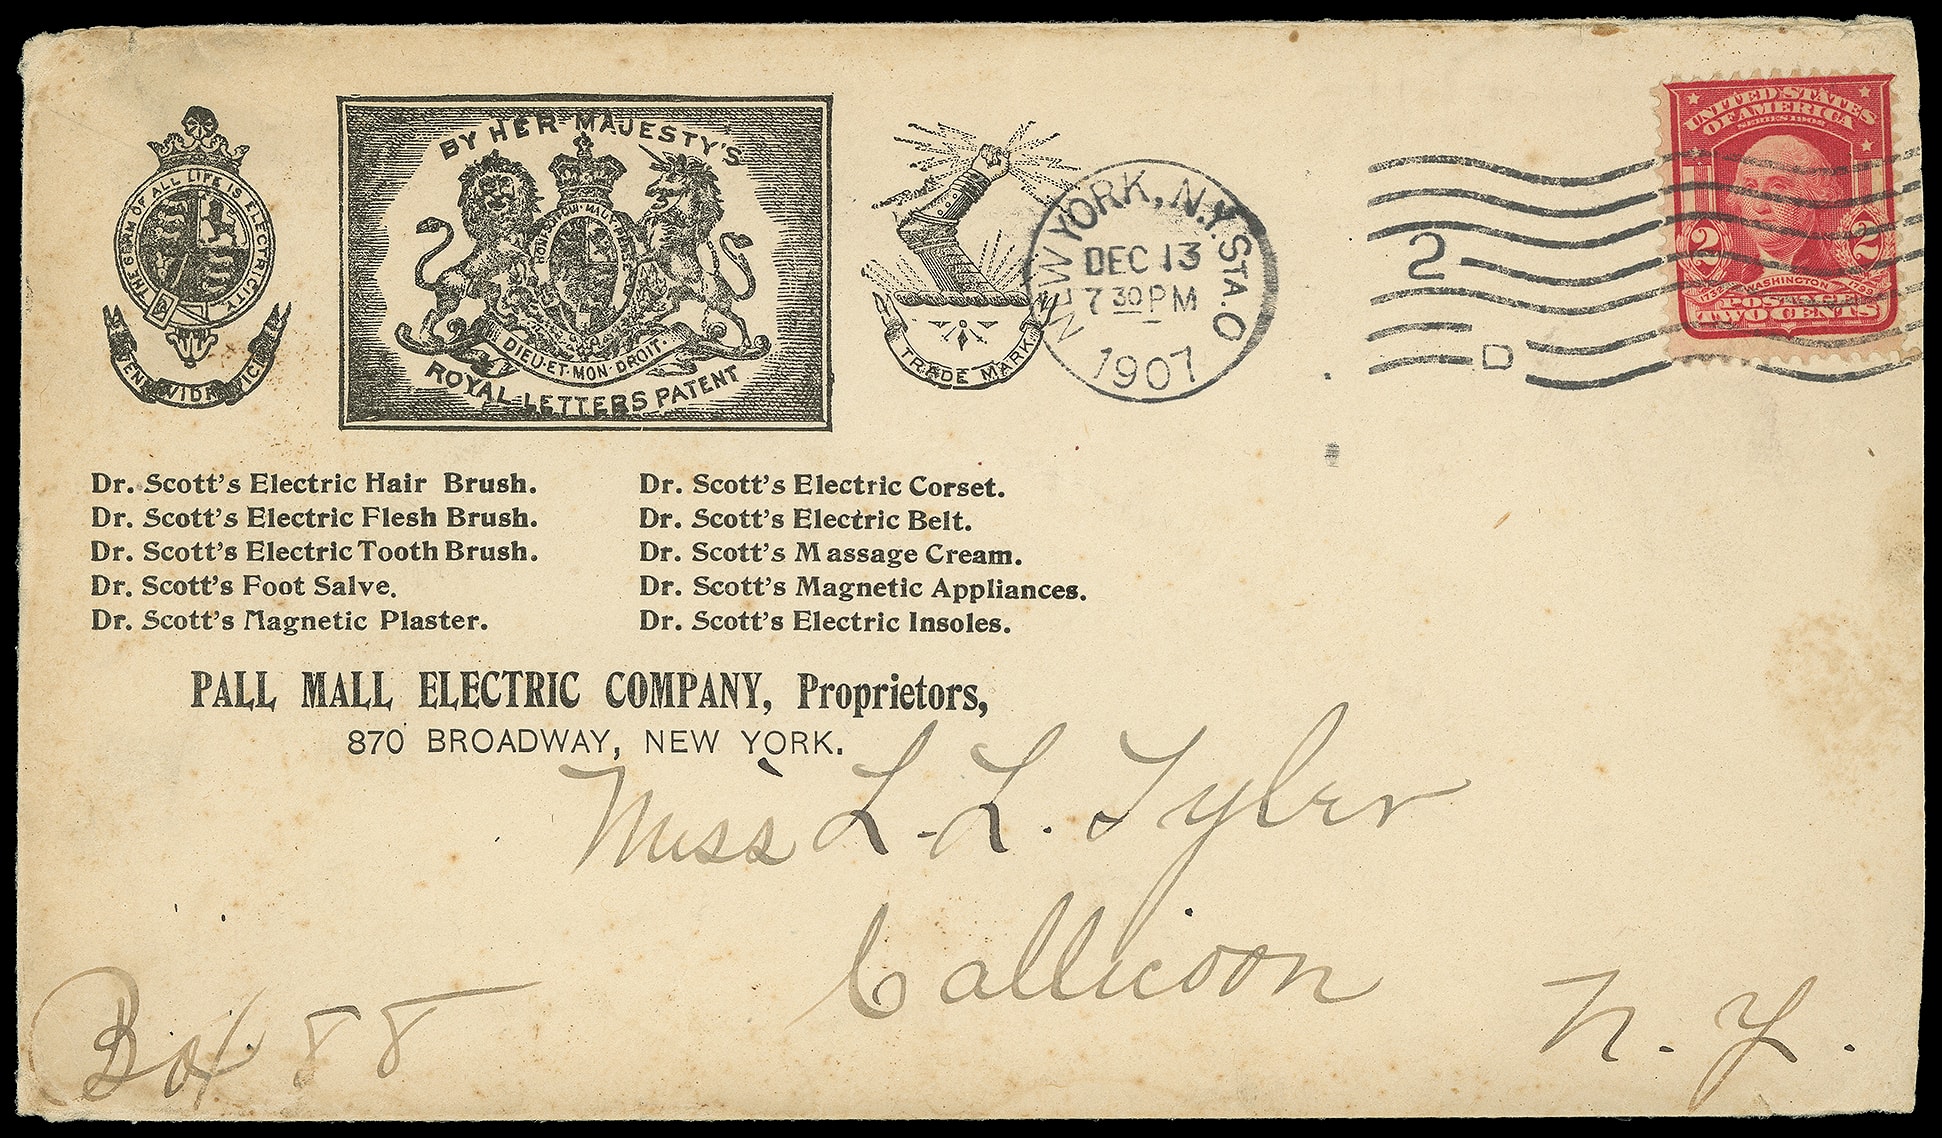 THE GERM OF ALL LIFE IS ELECTRICITY
VENI VIDI VICI
BY HER MAJESTY'S
HONI SOIT QUI MAL Y PENSE
DIEU·ET·MON·DROIT·
ROYAL LETTERS PATENT
TRADE MARK
NEW YORK, N.Y. STA. O
DEC 13
7 30 PM
1907
2
D
UNITED STATES
OF AMERICA
SERIES 1902
2 2
1732 WASHINGTON 1799
POSTAGE
TWO CENTS
Dr. Scott's Electric Hair Brush.
Dr. Scott's Electric Flesh Brush.
Dr. Scott's Electric Tooth Brush.
Dr. Scott's Foot Salve.
Dr. Scott's Magnetic Plaster.
Dr. Scott's Electric Corset.
Dr. Scott's Electric Belt.
Dr. Scott's Massage Cream.
Dr. Scott's Magnetic Appliances.
Dr. Scott's Electric Insoles.
PALL MALL ELECTRIC COMPANY, Proprietors,
870 BROADWAY, NEW YORK.
Miss L. L. Tyler
Callicoon
N. Y.
Box 88